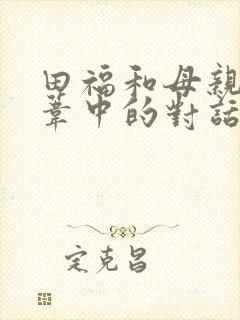 田福和母親
葦中的對話
定克昌